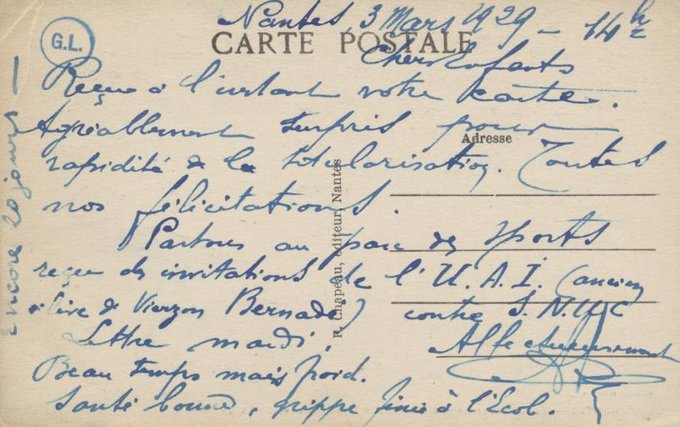 Nantes 3 Mars 1929 - 14h
G.L.
CARTE POSTALE
Chers Enfants
Reçue à l'instant votre carte.
Agréablement surpris pour
Adresse
rapidité de la titularisation. Toutes
nos félicitations.
Partons au parc des sports
reçu des invitations de l'U.A.I. (ancien
élève de Vierzon Bernade) contre S.N.U.C
Lettre mardi. Affectueusement
Beau temps mais froid.
Santé bonne, grippe finie à l'Ecol.
encore 20 jours
F. Chapeau, éditeur, Nantes